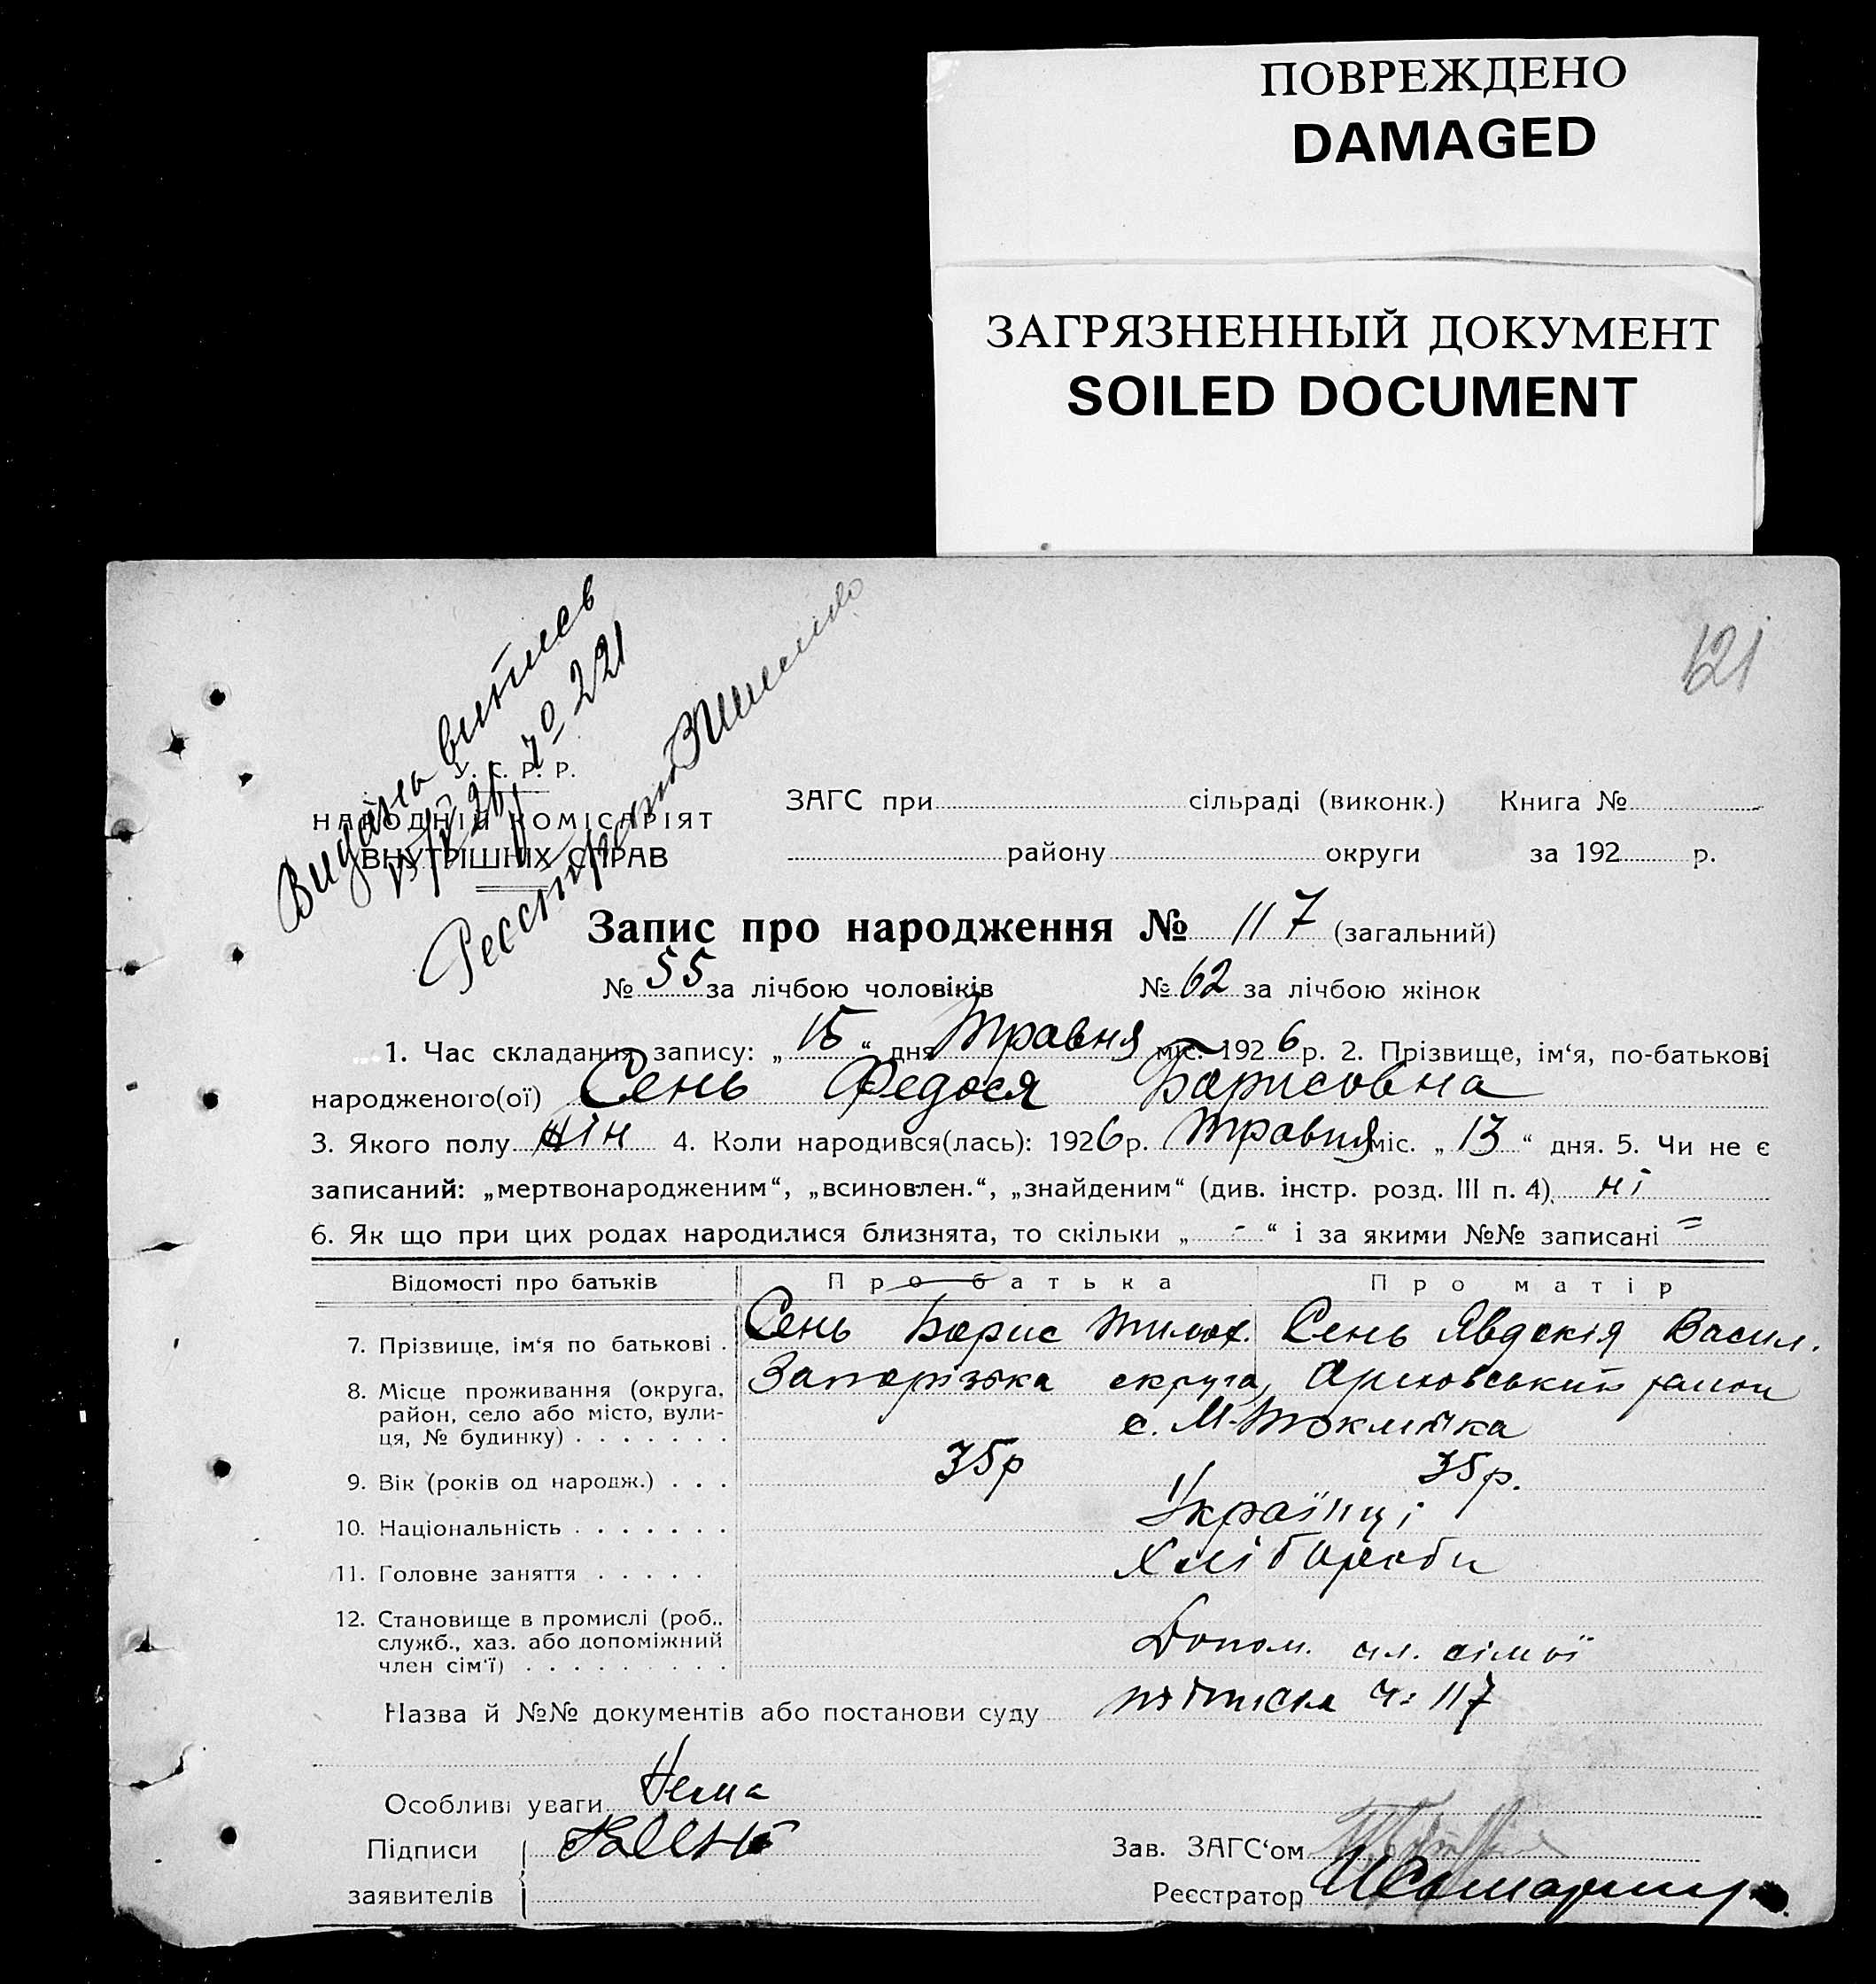 ПОВРЕЖДЕНО
DAMAGED
ЗАГРЯЗНЕННЫЙ ДОКУМЕНТ
SOILED DOCUMENT
121
Видана витпсь
№ 221
У. С. Р. Р.
НАРОДНІЙ КОМІСАРІЯТ
ВНУТРІШНІХ СПРАВ
ЗАГС при сільраді (виконк.) Книга №
району округи за 192 р.
Запис про народження № 117 (загальний)
№ 55 за лічбою чоловіків № 62 за лічбою жінок
1. Час складання запису: „15“ дня Травня міс. 1926 р. 2. Прізвище, ім‘я, по-батькові
народженого(ої) Сень Федося Борисовна
3. Якого полу жін 4. Коли народився(лась): 1926 р. Травня міс. „13“ дня. 5. Чи не є
записаний: „мертвонародженим“, „всиновлен.“, „знайденим“ (див. інстр. розд. III п. 4) ні
6. Як що при цих родах народилися близнята, то скільки „ - “ і за якими №№ записані =
Відомості про батьків Про батька Про матір
7. Прізвище, ім‘я по батькові . Сень Борис Тимох. Сень Явдокія Васил.
8. Місце проживання (округа, Запорізька округа, Оріховський район
район, село або місто, вули-
ця, № будинку) . . . . . . . с. М-Токмачка
9. Вік (років од народж.) . . . 35р 35р.
10. Національність . . . . . . . Українці
11. Головне заняття . . . . . Хлібороби
12. Становище в промислі (роб.,
служб., хаз. або допоміжний
член сім‘ї) . . . . . . . . . Допом. чл. сімьї
Назва й №№ документів або постанови суду ч: 117
Особливі уваги Нема
Підписи
заявителів
Зав. ЗАГС‘ом
Реєстратор